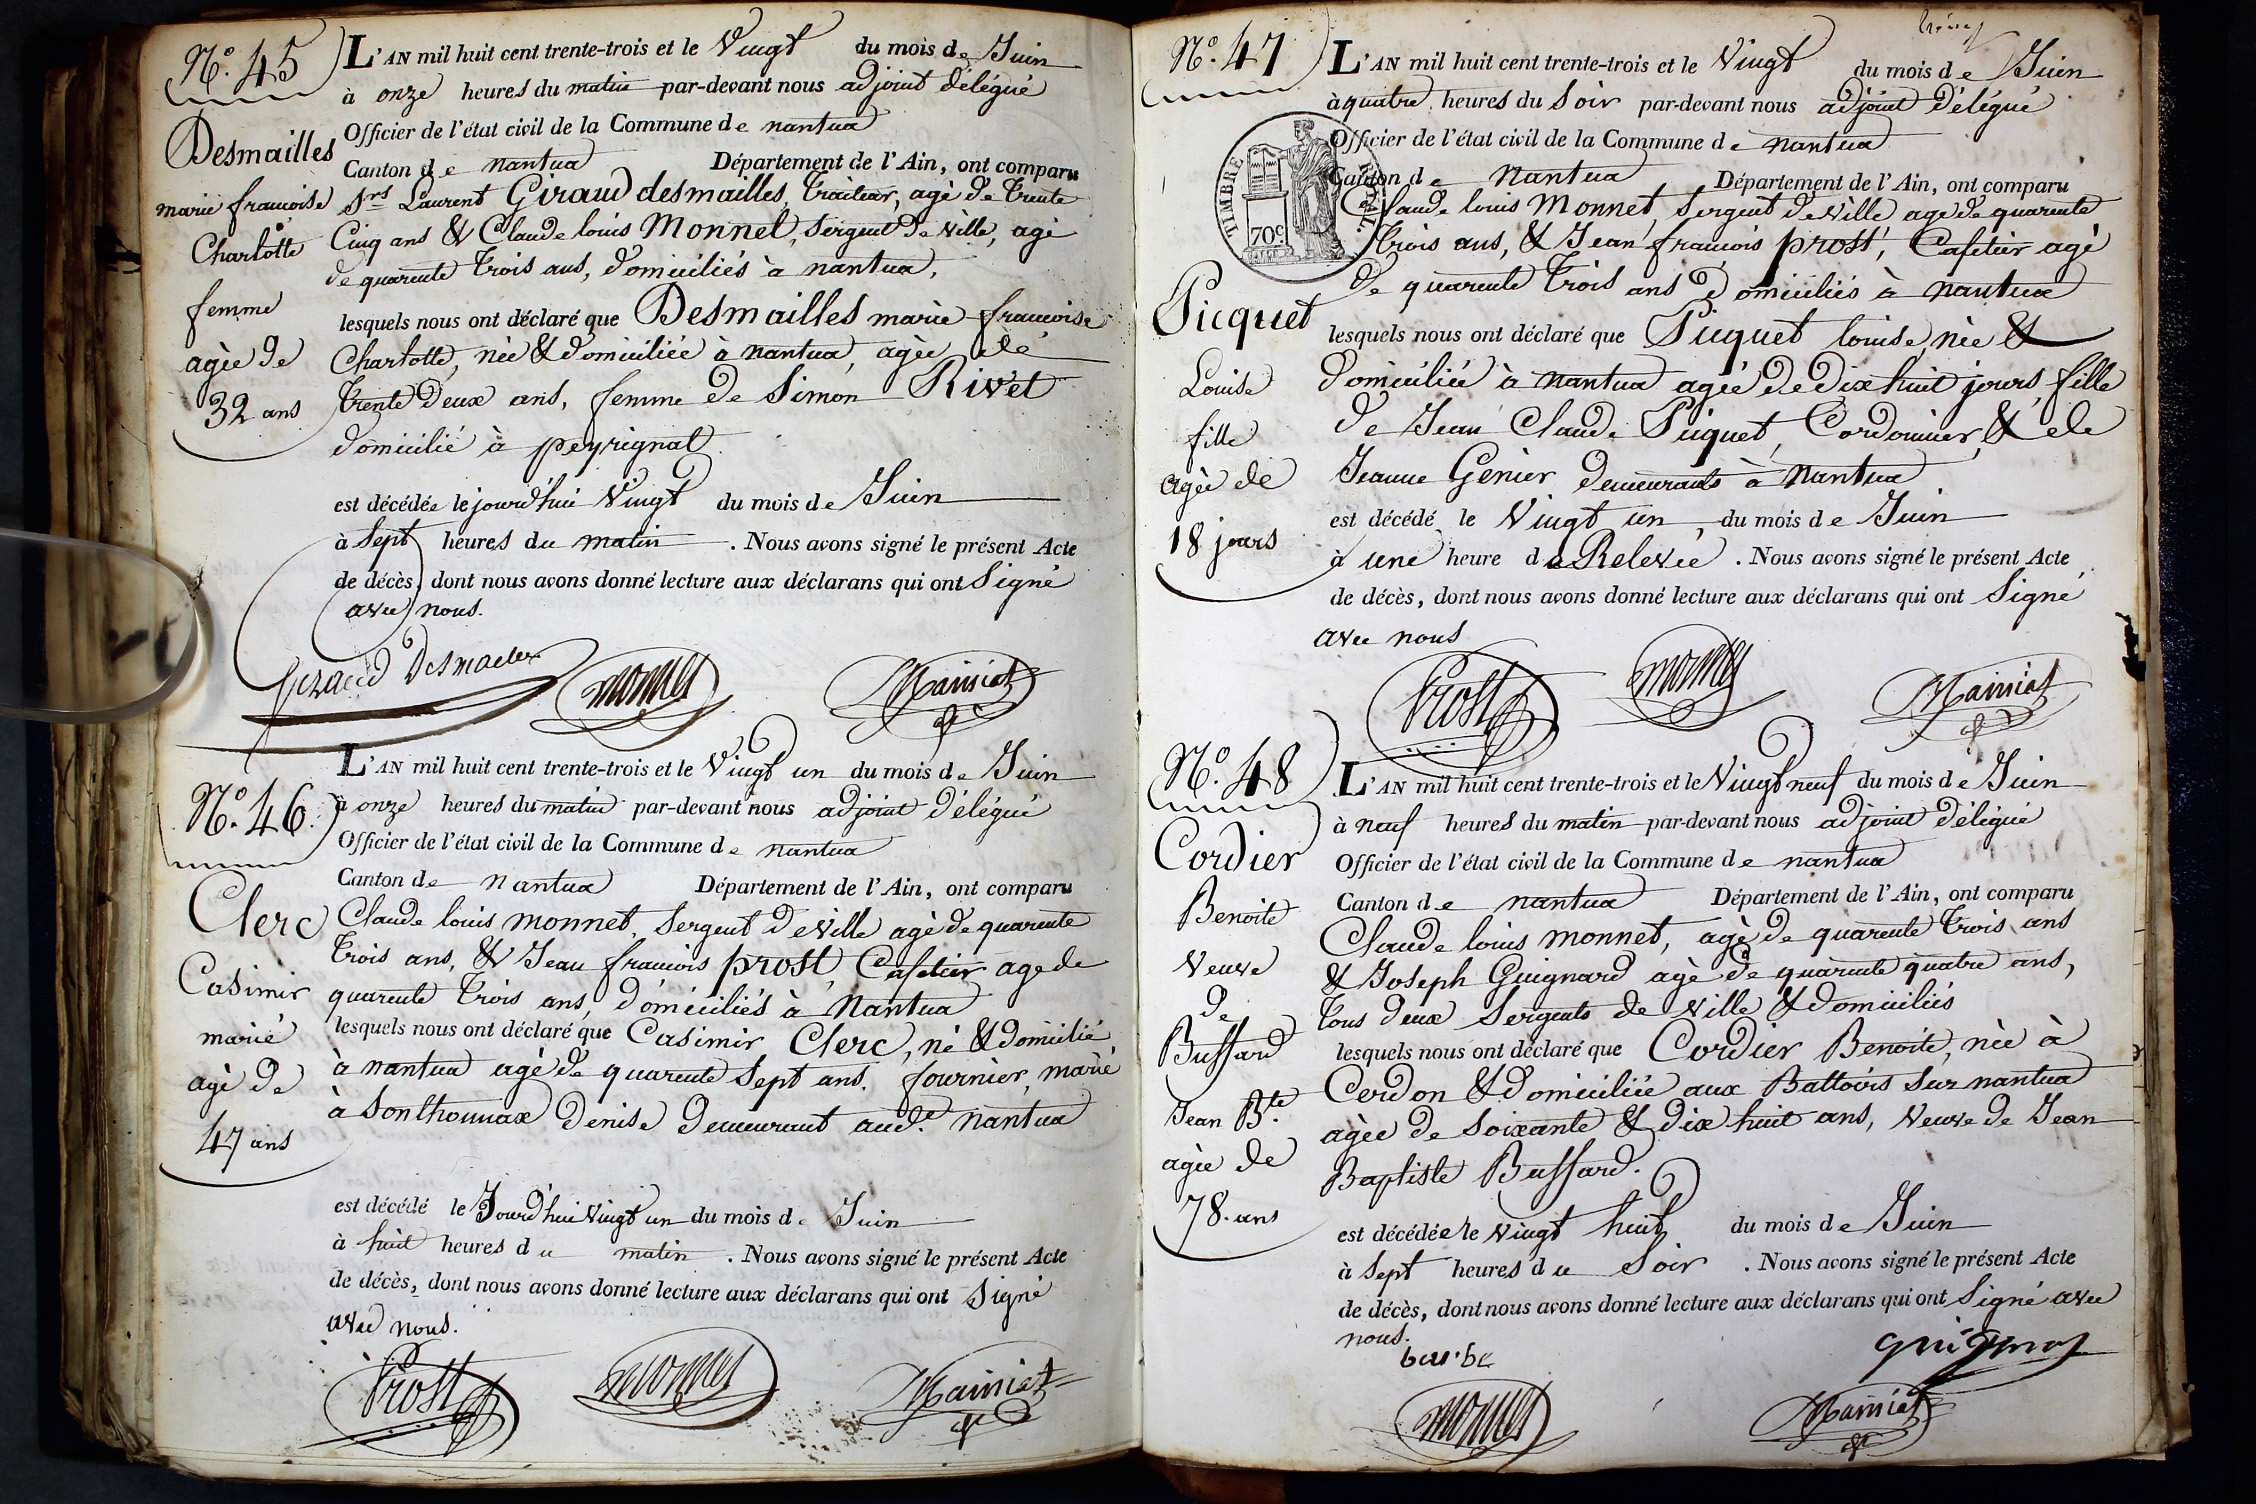 N.o 45
L'AN mil huit cent trente-trois et le Vingt du mois de Juin
à onze heures du matin par-devant nous adjoint délégué
Desmailles
Officier de l'état civil de la Commune de nantua
Canton de nantua Département de l'Ain, ont comparu
marie francoise
Srs Laurent Giraud desmailles, traiteur, agé de trente
Charlotte
Cinq ans & Claude louis Monnet, Sergent de Ville, agé
de quarente trois ans, domiciliés à nantua,
femme
lesquels nous ont déclaré que Desmailles marie francoise
agée de
Charlotte, née & domiciliée à nantua, agée de
32 ans
trente deux ans, femme de Simon Rivet
domicilié à peyrignat
est décédée le jourd'hui Vingt du mois de Juin
à Sept heures du matin . Nous avons signé le présent Acte
de décès, dont nous avons donné lecture aux déclarans qui ont Signé
avec nous.
Giraud Desmailles monnet Mainiat
N.o 46.
L'AN mil huit cent trente-trois et le Vingt un du mois de Juin
à onze heures du matin par-devant nous adjoint délégué
Officier de l'état civil de la Commune de nantua
Canton de nantua Département de l'Ain, ont comparu
Clerc
Claude louis monnet, Sergent de Ville agé de quarente
Casimir
trois ans, & Jean francois prost, Cafetier age de
quarente trois ans, domiciliés à Nantua
marié
lesquels nous ont déclaré que Casimir Clerc, né & domicilié
agé de
à nantua agé de quarente Sept ans, fournier, marié
47 ans
à Sonthonnax Denise Demeurant aud.t Nantua
est décédé le Jourd'hui Vingt un du mois de Juin
à huit heures du matin . Nous avons signé le présent Acte
de décès, dont nous avons donné lecture aux déclarans qui ont Signé
avec nous.
Prost monnet Mainiat
N.o 47
L'AN mil huit cent trente-trois et le Vingt du mois de Juin
à quatre heures du Soir par-devant nous adjoint délégué
Officier de l'état civil de la Commune de nantua
TIMBRE ROYAL
70c
Canton de Nantua Département de l'Ain, ont comparu
Claude louis Monnet, Sergent de Ville age de quarente
trois ans, & Jean francois prost, Cafetier agé
de quarente trois ans domiciliés à Nantua
Picquet
lesquels nous ont déclaré que Picquet louise, née &
Louise
domiciliée à nantua agée de dix huit jours fille
fille
de Jean Claude Piquet, Cordonnier, & de
agée de
Jeanne Genier demeurants à Nantua
18 jours
est décédé le Vingt un du mois de Juin
à une heure de Relevée . Nous avons signé le présent Acte
de décès, dont nous avons donné lecture aux déclarans qui ont Signé
avec nous
Prost monnet Mainiat
N.o 48
L'AN mil huit cent trente-trois et le Vingt neuf du mois de Juin
à neuf heures du matin par-devant nous adjoint délégué
Cordier
Officier de l'état civil de la Commune de nantua
Canton de nantua Département de l'Ain, ont comparu
Benoite
Claude louis monnet, agé de quarente trois ans
Veuve
& Joseph Guignard agé de quarente quatre ans,
de
tous deux Sergents de Ville & domiciliés
Buffard
lesquels nous ont déclaré que Cordier Benoite, née à
Jean Bte
Cerdon & domiciliée aux Battoirs sur nantua
agée de Soixante & dix huit ans, Veuve de Jean
agée de
Baptiste Buffard.
78 ans
est décédée le Vingt huit du mois de Juin
à Sept heures du Soir . Nous avons signé le présent Acte
de décès, dont nous avons donné lecture aux déclarans qui ont Signé avec
nous.
monnet Mainiat